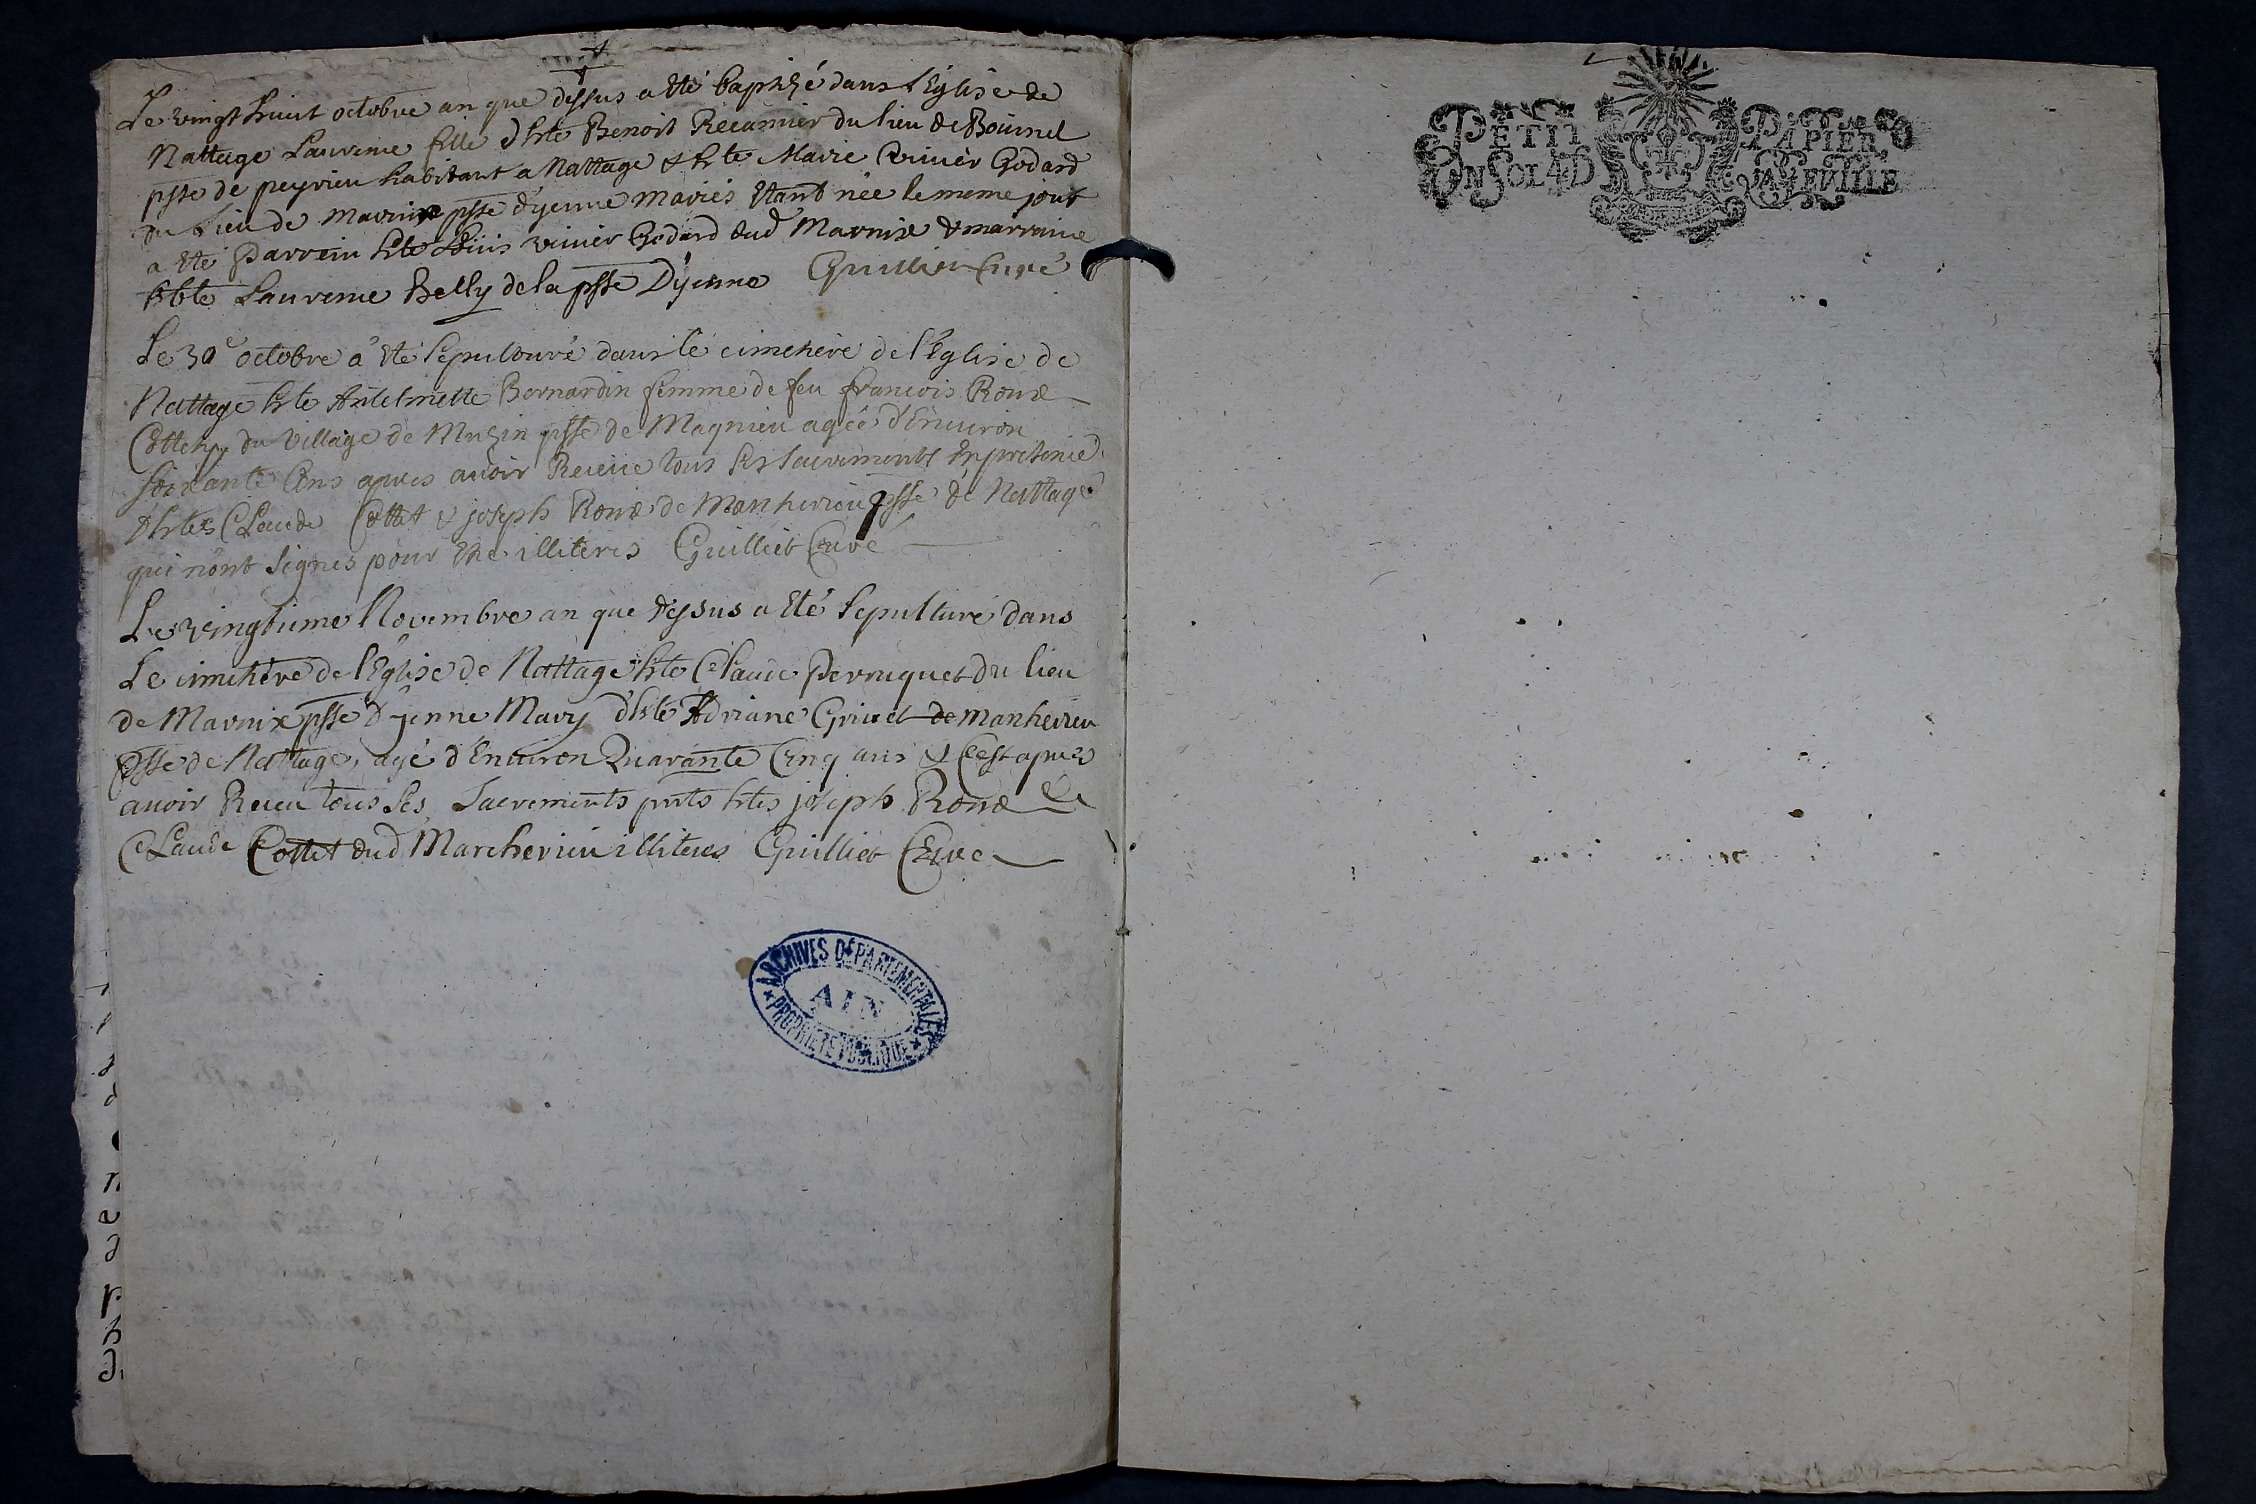 Le vingt huit octobre an que dessus a eté baptizé dans l'Eglise de
Nattage Laurence fille d'hte Benoit Recamier du lieu de
psse de peyrieu habitant a Nattage & hte Marie vivier Godard
du lieu de Marnix psse d'yenne mariés etant née le meme jour
a eté Parrein hte vivier Godard dud Marnix & marraine
hte Laurence Belly de la psse D'yenne Guilliet Curé
Le 30e octobre a eté sepulturé dans le cimetiere de l'Eglise de
Nattage hte Antelmette Bernardin femme de feu francois Roux
du village de Muzin psse de Magnieu agée d'Environ
soixante Ans apres avoir Receue tous ses sacrements En presence
d'htes Claude Cottet & joseph Roux de psse de Nattage
qui n'ont signes pour etre illiteres Guilliet Curé
Le vingtieme Novembre an que dessus a eté sepulturé dans
Le cimetiere de l'Eglise de Nattage hte Claude Perruquet du lieu
de Marnix psse d'yenne Mary d'hte Adriane Grivet de
psse de Nattage, agé d'Environ Quarante Cinq ans & c'est apres
avoir Receu tous ses sacrements pnts htes joseph Roux &
Claude Cottet dud illiteres Guilliet Curé
ARCHIVES DÉPARTEMENTALES
AIN
PROPRIÉTÉ PUBLIQUE
PETIT PAPIER
UN SOL 4 D LA FEUILLE